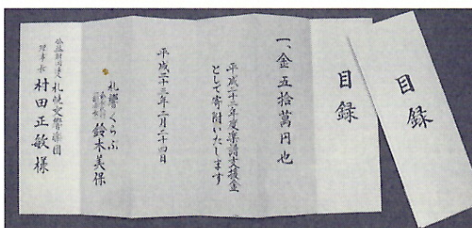 目録
目録
一、金五拾萬円也
平成二十二年度楽譜支援金
として寄附いたします
平成二十三年二月二十四日
札響くらぶ
鈴木美保
札幌交響楽団
村田正敏様